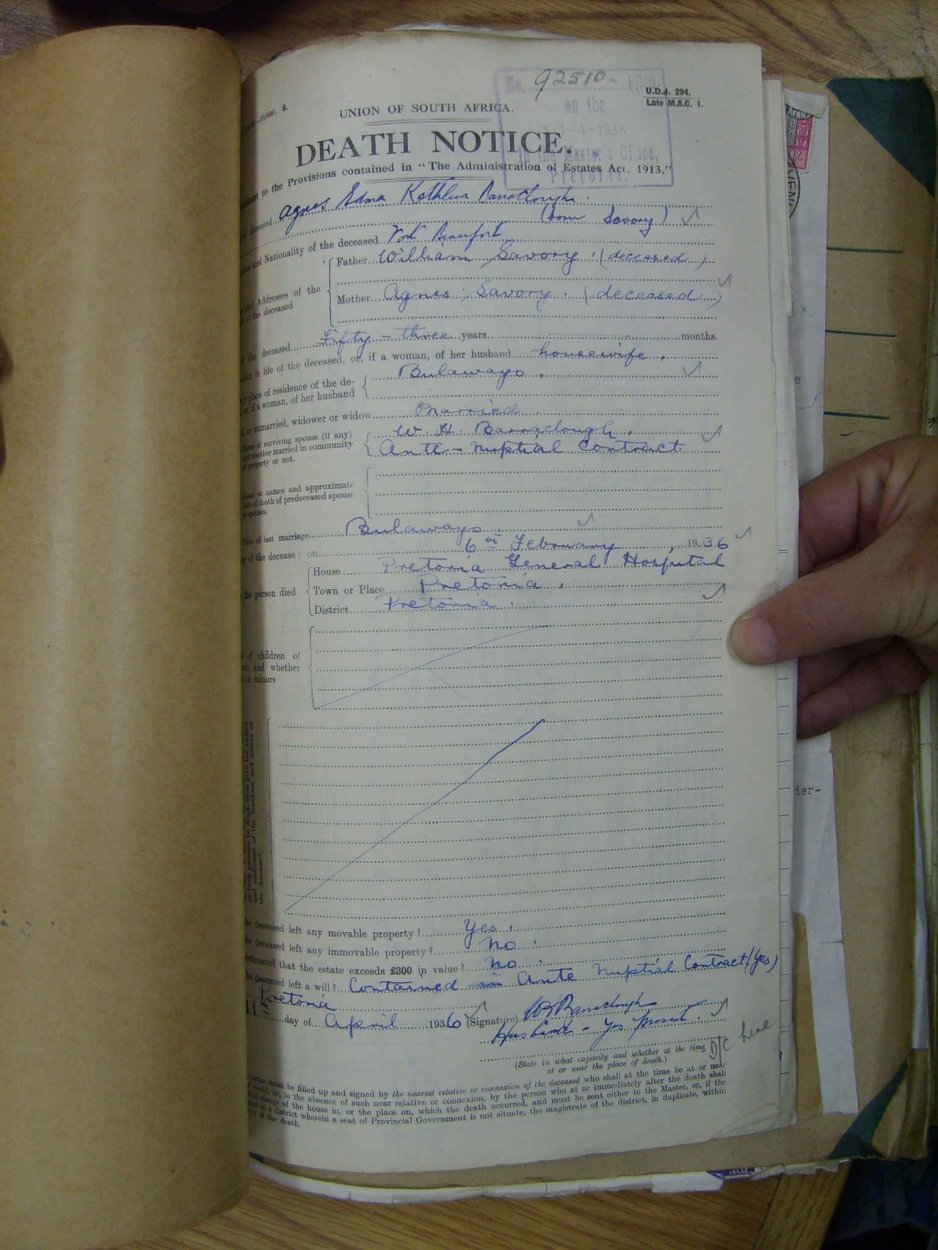 92510
U.D.J. 294.
Late M.S.C. 1.
No.
on the
-4-1936
in the Master's Office,
Pretoria.
UNION OF SOUTH AFRICA.
DEATH NOTICE.
to the Provisions contained in "The Administration of Estates Act, 1913."
deceased Agnes Edna Kathleen Barraclough
(born Savory)
and Nationality of the deceased Fort Beaufort
Father William Savory (deceased)
and Addresses of the
of the deceased
Mother Agnes Savory. (deceased)
the deceased Fifty-three years months.
in life of the deceased, or, if a woman, of her husband housewife.
place of residence of the de-
or, if a woman, of her husband
Bulawayo.
or unmarried, widower or widow Married.
of surviving spouse (if any)
and whether married in community
of property or not.
W. H. Barraclough.
Ante-Nuptial Contract.
or names and approximate
of death of predeceased spouse
or spouses.
Place of last marriage Bulawayo.
of the decease : on 6th February, 1936
House Pretoria General Hospital
the person died
Town or Place Pretoria.
District Pretoria.
of children of
and whether
or minors
the deceased left any movable property? Yes.
the deceased left any immovable property? No.
estimated that the estate exceeds £300 in value? No.
the deceased left a will? Contained in Ante Nuptial Contract (Yes)
Pretoria
11th day of April 1936 (Signature) W H Barraclough
Husband - Yes present.
(State in what capacity and whether at the time
at or near the place of death.)
D/C here
must be filled up and signed by the nearest relative or connexion of the deceased who shall at the time be at or near
in the absence of such near relative or connexion, by the person who at or immediately after the death shall
of the house in, or the place on, which the death occurred, and must be sent either to the Master, or, if the
in a district wherein a seat of Provincial Government is not situate, the magistrate of the district, in duplicate, within
of the death.